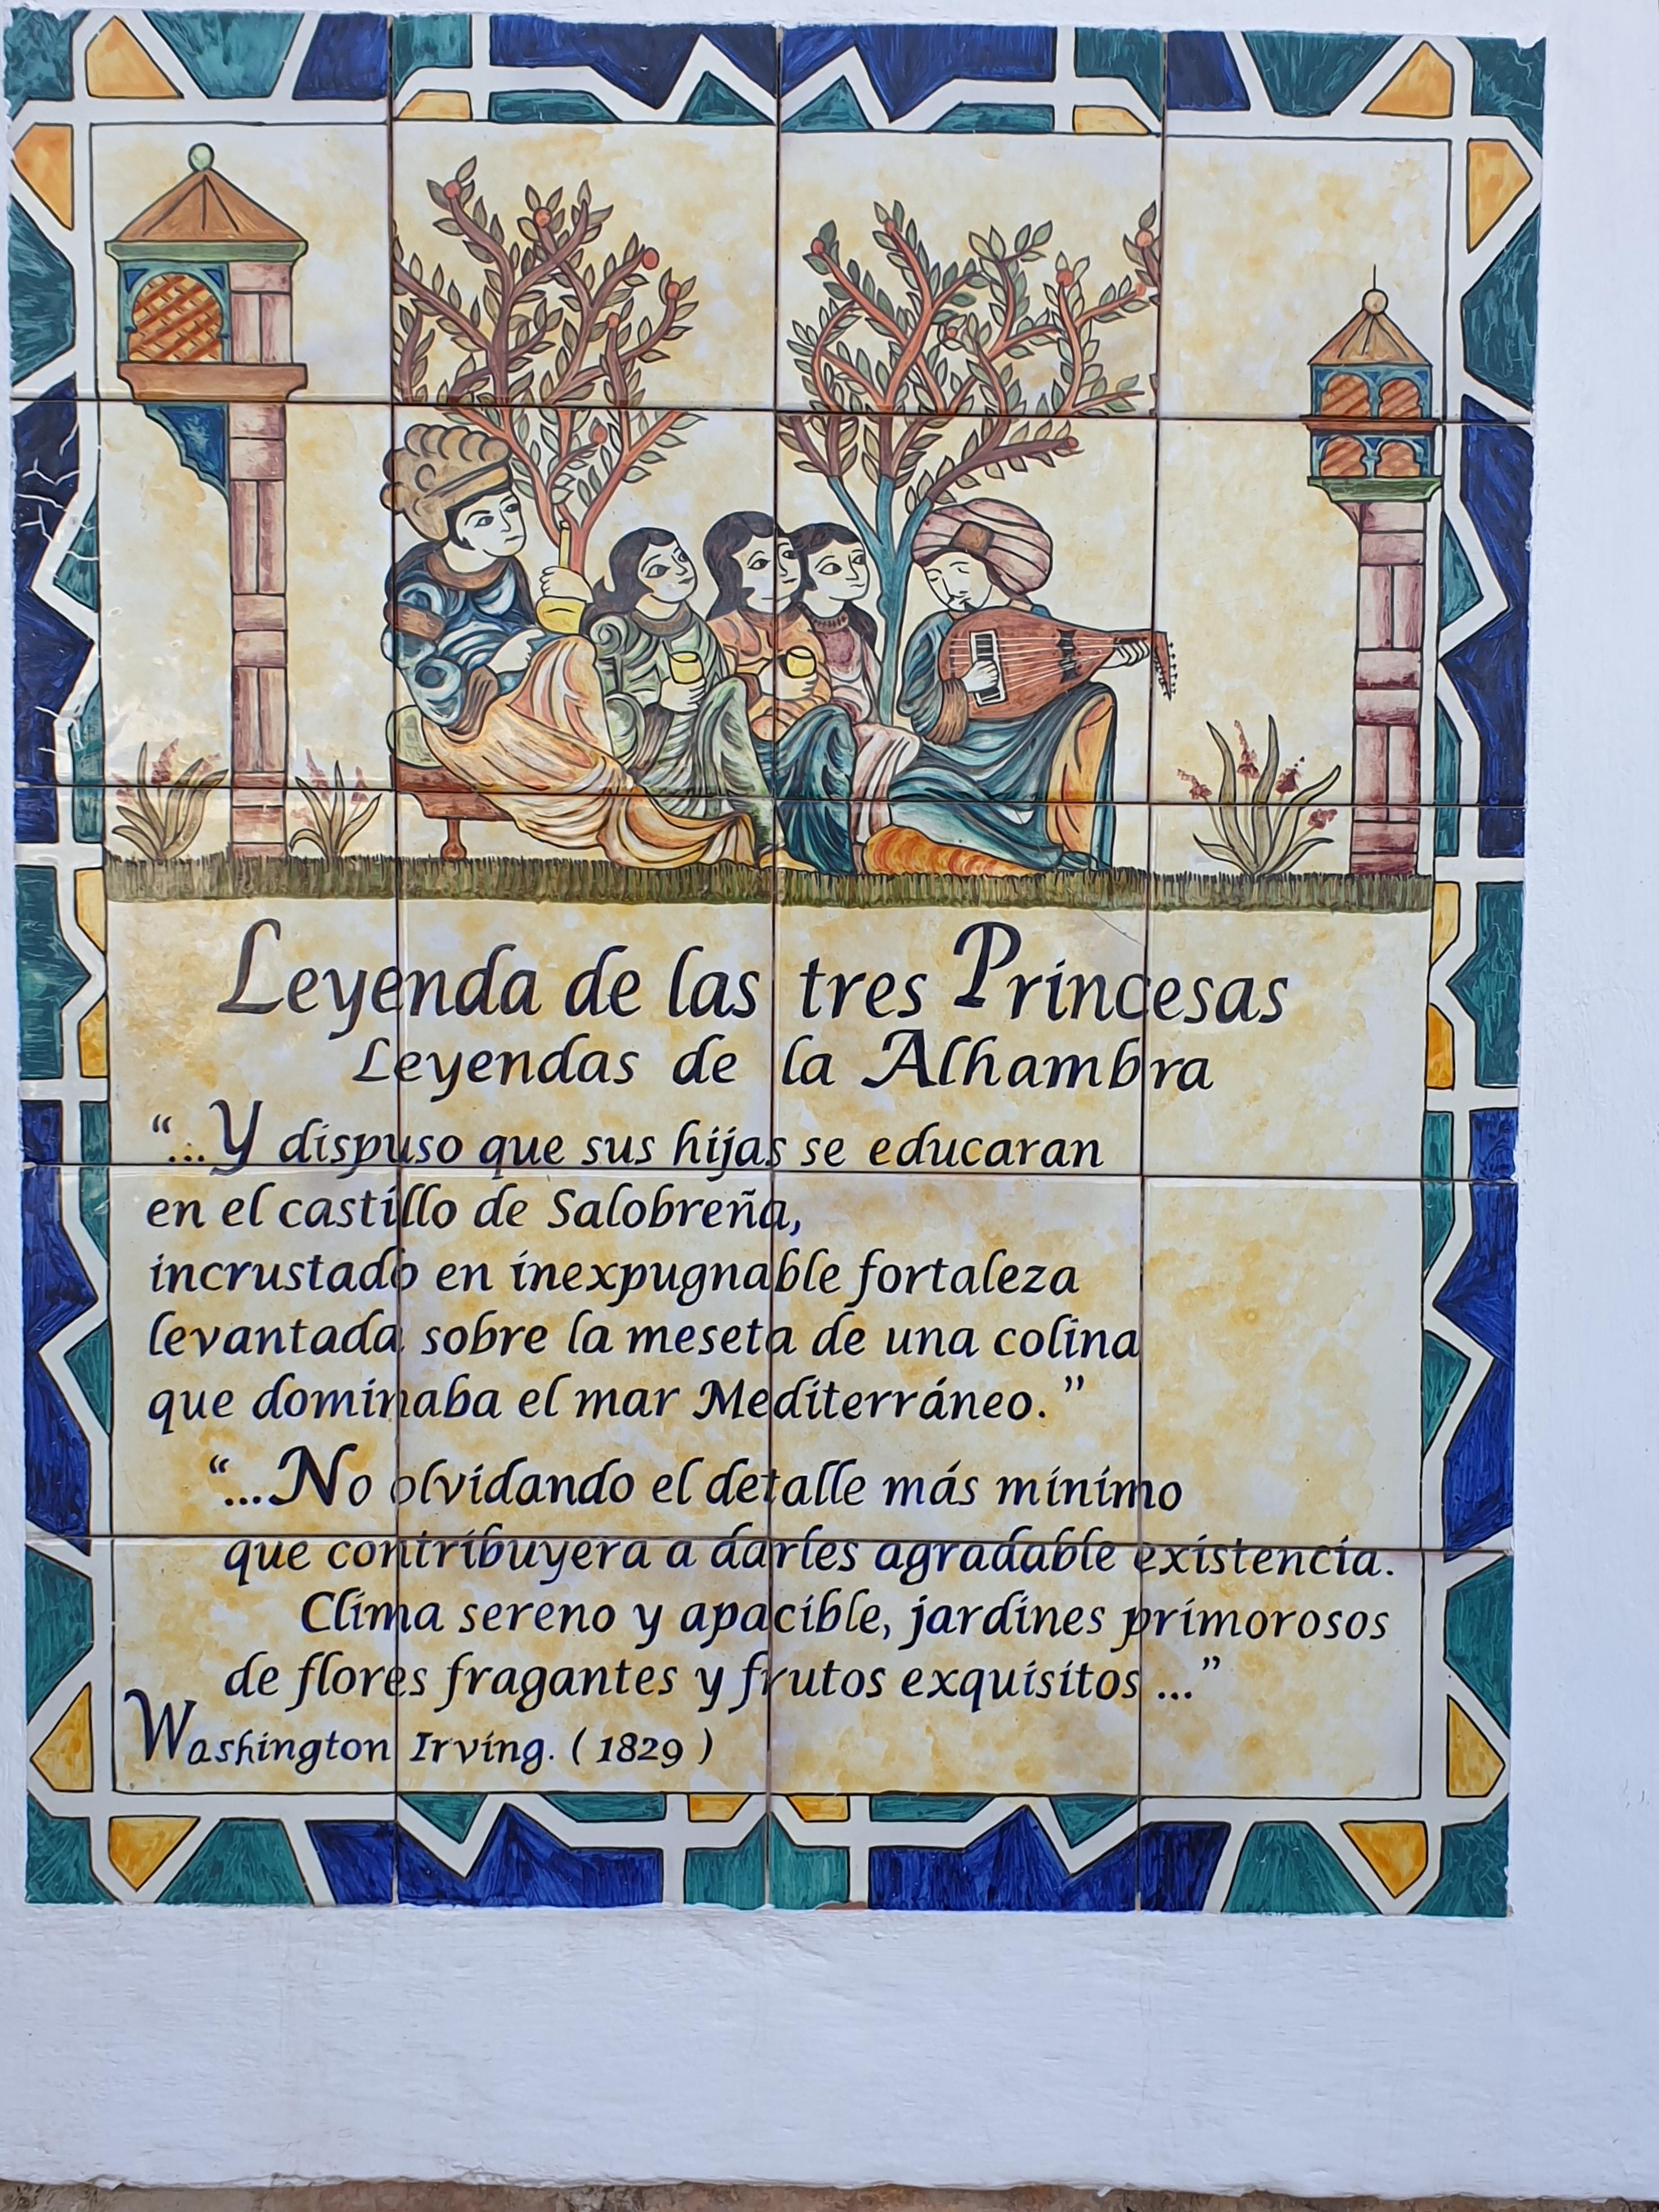 Leyenda de las tres Princesas
Leyendas de la Alhambra
“...Y dispuso que sus hijas se educaran
en el castillo de Salobreña,
incrustado en inexpugnable fortaleza
levantada sobre la meseta de una colina
que dominaba el mar Mediterráneo.”
“...No olvidando el detalle más mínimo
que contribuyera a darles agradable existencia.
Clima sereno y apacible, jardines primorosos
de flores fragantes y frutos exquisitos ...”
Washington Irving. ( 1829 )